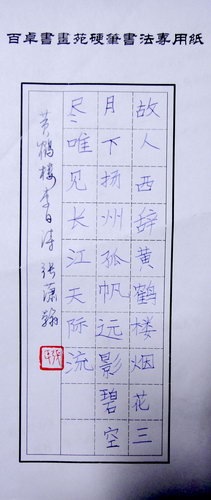 百卓書畫苑硬筆書法專用紙
故人西辞黄鹤楼烟花三
月下扬州孤帆远影碧空
尽唯见长江天际流
黄鹤楼李白诗 张潇翰